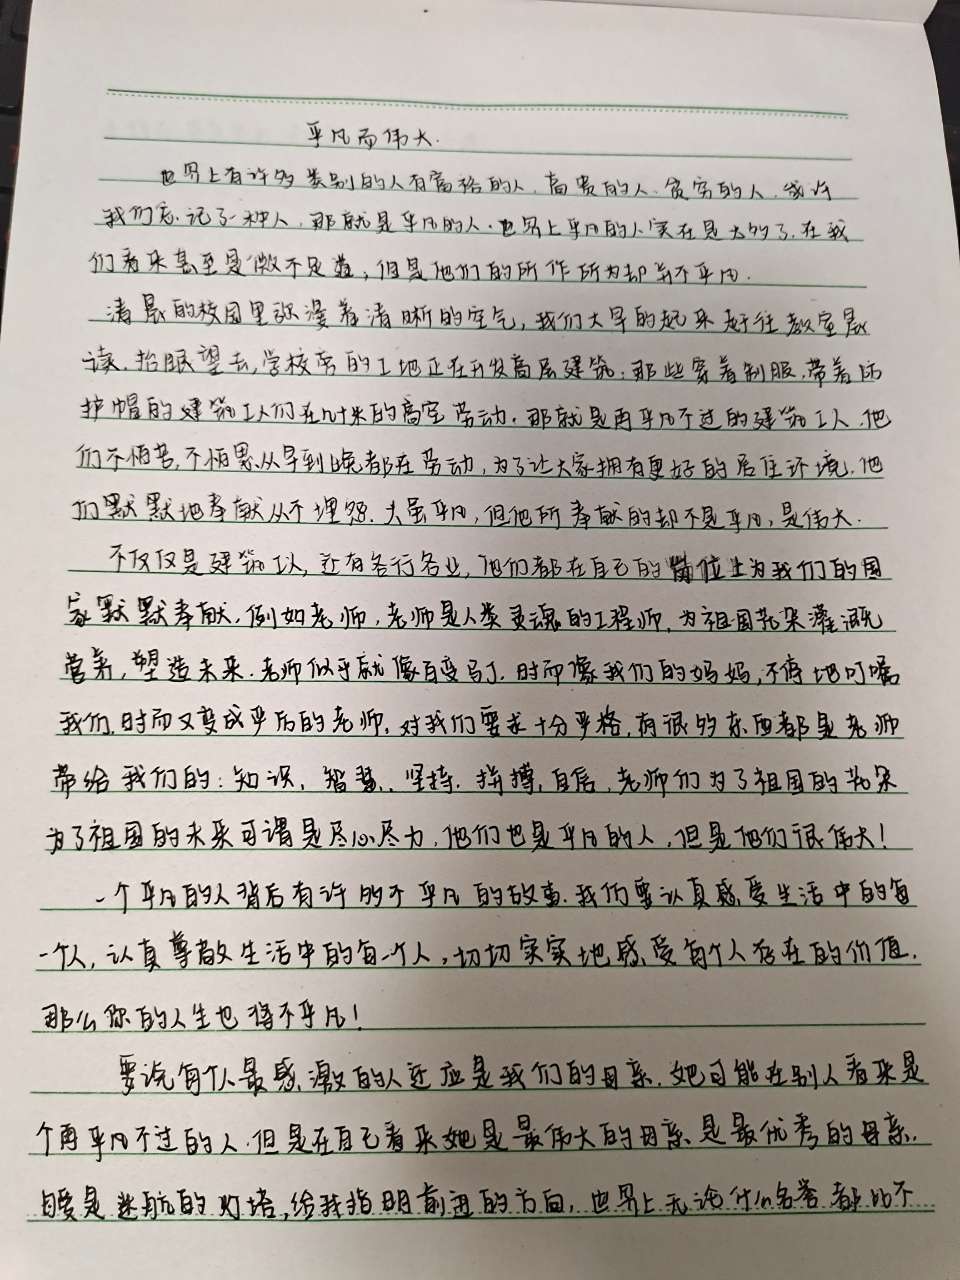 平凡而伟大.
世界上有许多类别的人有富裕的人、高贵的人、贫穷的人,或许
我们忘记了一种人,那就是平凡的人.世界上平凡的人实在是太多了,在我
们看来甚至是微不足道,但是他们的所作所为却并不平凡.
清晨的校园里弥漫着清晰的空气,我们大早的起来赶往教室晨
读.抬眼望去,学校旁的工地正在开发高层建筑:那些穿着制服,带着防
护帽的建筑工人们在几十米的高空劳动.那就是再平凡不过的建筑工人.他
们不怕苦,不怕累.从早到晚都在劳动,为了让大家拥有更好的居住环境.他
们默默地奉献从不埋怨.大虽平凡,但他所奉献的却不是平凡,是伟大.
不仅仅是建筑工人,还有各行各业,他们都在自己的岗位上为我们的国
家默默奉献.例如老师,老师是人类灵魂的工程师,为祖国花朵灌溉
营养,塑造未来.老师似乎就像百变马丁.时而像我们的妈妈,不停地叮嘱
我们,时而又变成严厉的老师,对我们要求十分严格,有很多东西都是老师
带给我们的:知识,智慧,坚持,拼搏,自信,老师们为了祖国的花朵
为了祖国的未来可谓是尽心尽力,他们也是平凡的人,但是他们很伟大!
一个平凡的人背后有许多不平凡的故事.我们要认真感受生活中的每
一个人,认真尊敬生活中的每一个人,切切实实地感受每个人存在的价值,
那么你的人生也将不平凡!
要说每个人最感激的人还应是我们的母亲.她可能在别人看来是
个再平凡不过的人.但是在自己看来她是最伟大的母亲是最优秀的母亲.
她是迷航的灯塔,给我指明前进的方向,世界上无论什么名誉都比不